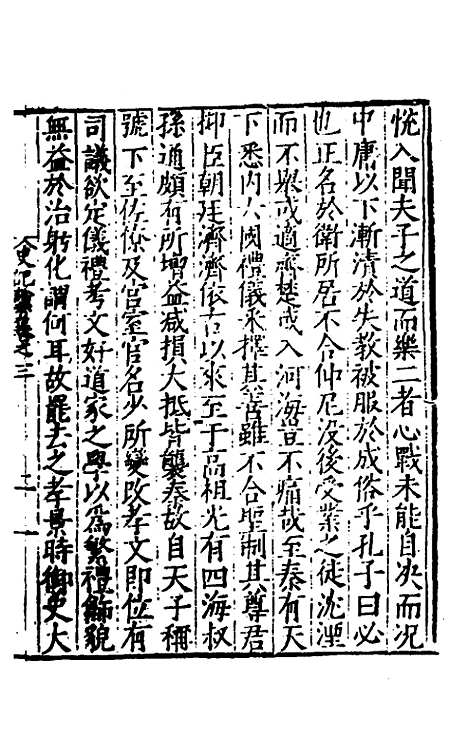 悅入聞夫子之道而樂二者心戰未能自決而况
中庸以下漸漬於失教被服於成俗乎孔子曰必
也正名於衛所居不合仲尼没後受業之徒沈湮
而不舉或適齊楚或入河海豈不痛哉至秦有天
下悉内六國禮儀采擇其善雖不合聖制其尊君
抑臣朝廷濟濟依古以來至于高祖光有四海叔
孫通頗有所增益减損大抵皆襲秦故自天子稱
號下至佐僚及宫室官名少所變改孝文即位有
司議欲定儀禮孝文好道家之學以爲繁禮飾貌
無益於治躬化謂何耳故罷去之孝景時御史大
史記 三